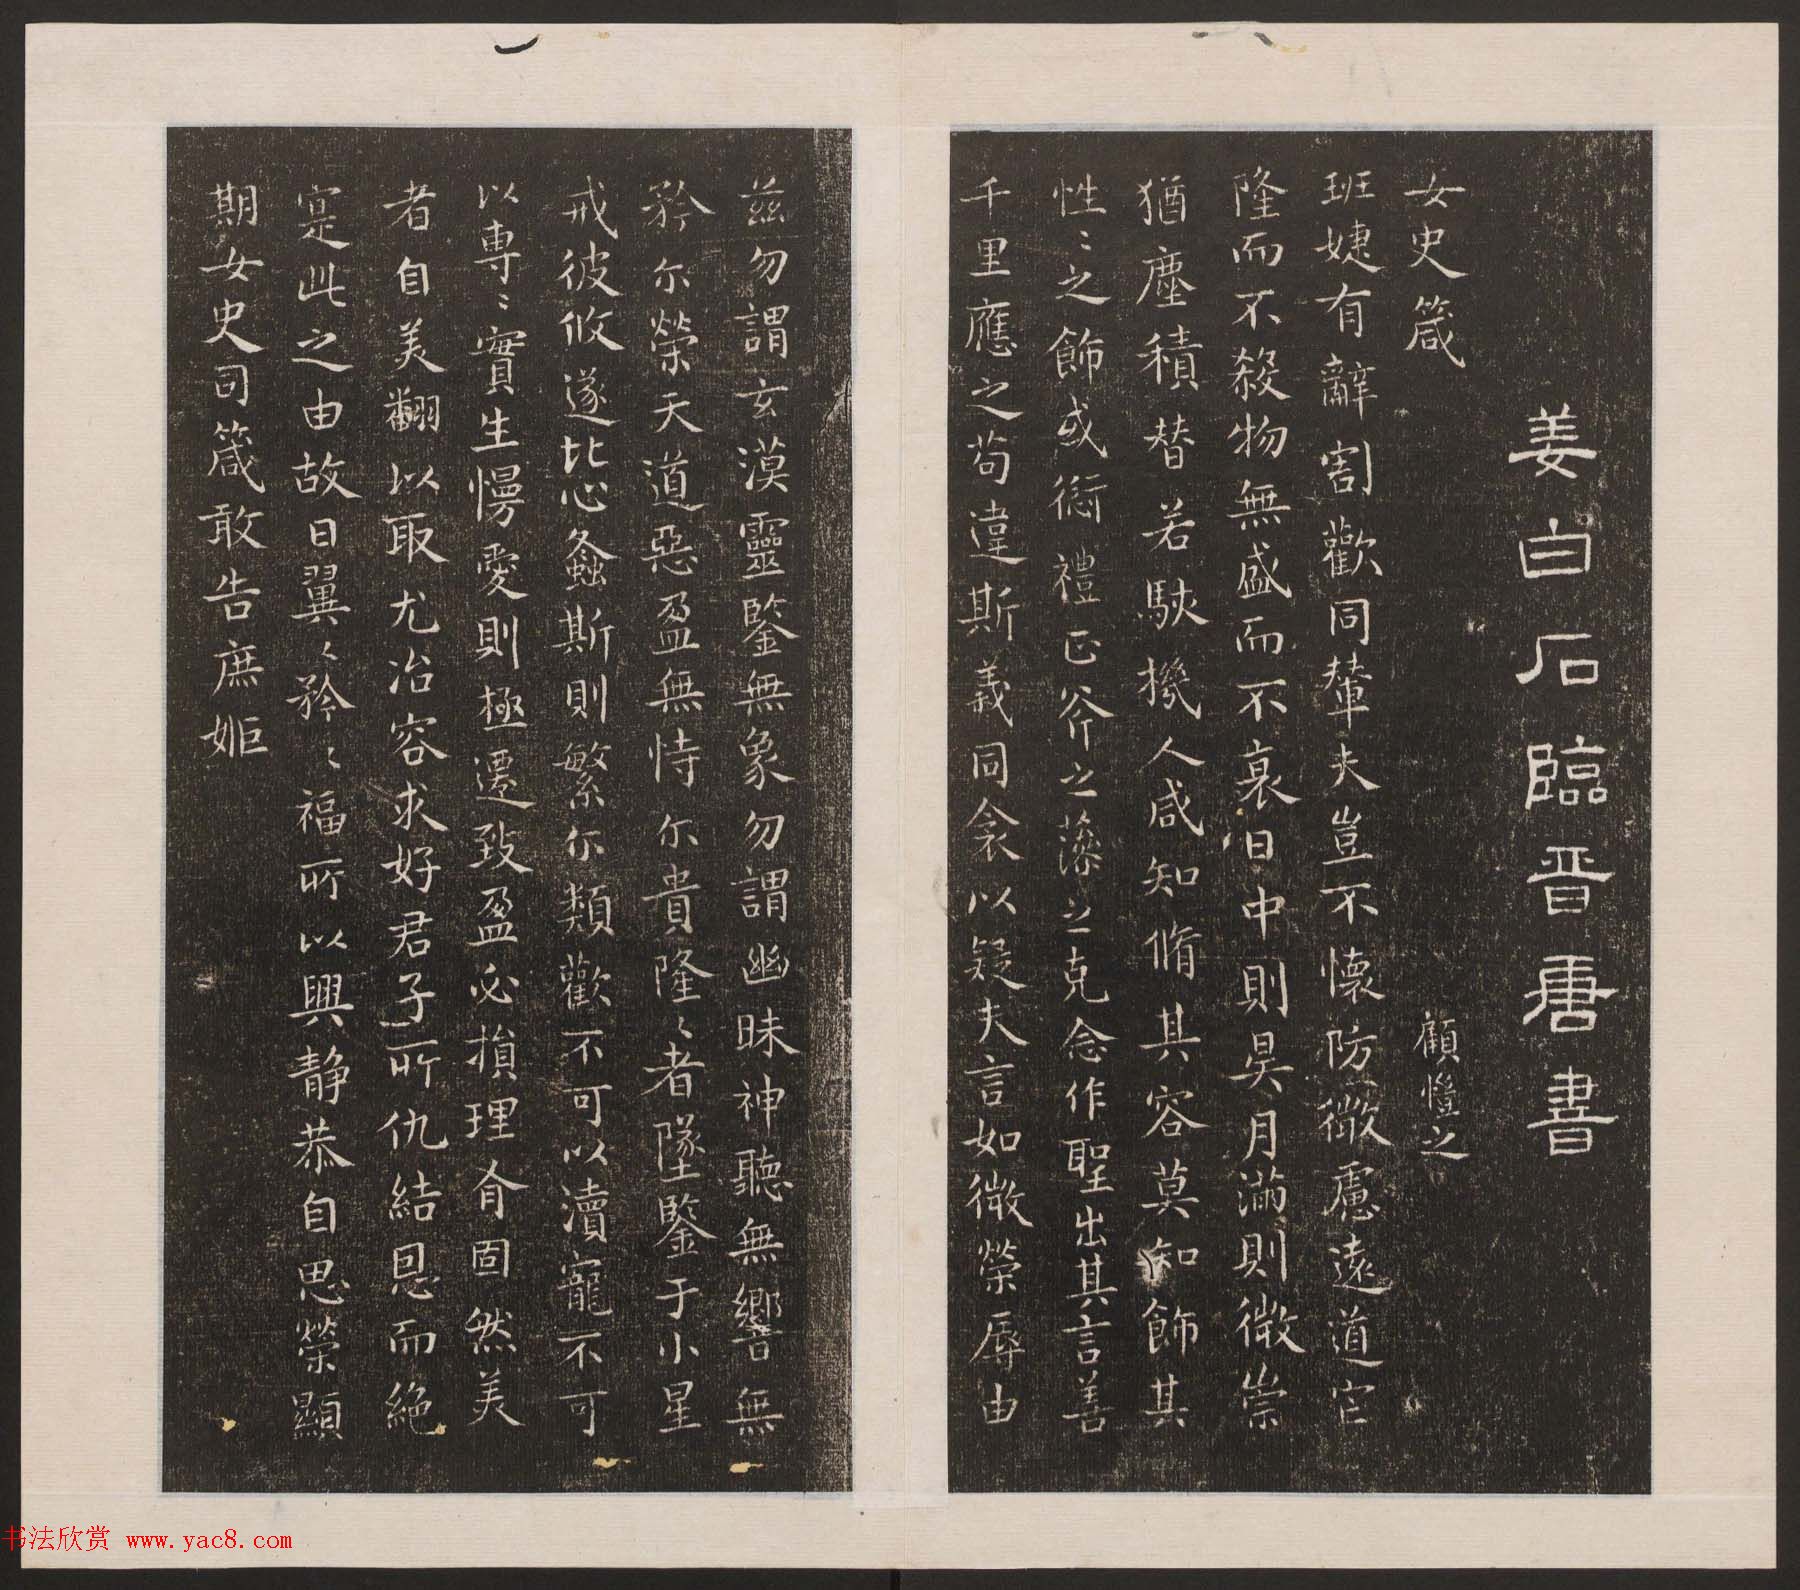 姜白石臨晉唐書
女史箴
顧愷之
班婕有辭割歡同輦夫豈不懷防微慮遠道它
隆而不殺物無盛而不衰日中則昃月滿則微崇
猶塵積替若駃機人咸知脩其容莫知飾其
性〻之飾或愆禮正斧之藻之克念作聖出其言善
千里應之苟違斯義同衾以疑夫言如微榮辱由
茲勿謂玄漠靈鑒無象勿謂幽昧神聽無響無
矜尒榮天道惡盈無恃尒貴隆〻者墜鑒于小星
戒彼攸遂比心螽斯則繁尒類歡不可以瀆寵不可
以専〻實生慢愛則極遷致盈必損理有固然美
者自美翻以取尤冶容求好君子所仇結恩而絕
寔此之由故曰翼〻矜〻福所以興静恭自思榮顯
期女史司箴敢告庶姬
书法欣赏 www.yac8.com